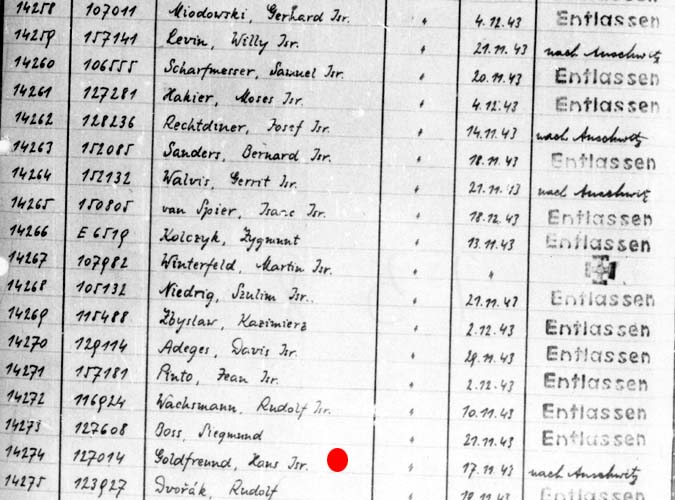 14258 107011 Miodowski, Gerhard Isr. " 4.12.43 Entlassen
14259 157141 Levin, Willy Isr. " 21.11.43 nach Auschwitz
14260 106555 Scharfmesser, Samuel Isr. " 20.11.43 Entlassen
14261 127281 Hakier, Moses Isr. " 4.12.43 Entlassen
14262 128236 Rechtdiner, Josef Isr. " 14.11.43 nach Auschwitz
14263 152085 Sanders, Bernard Isr. " 18.11.43 Entlassen
14264 152132 Walvis, Gerrit Isr. " 21.11.43 nach Auschwitz
14265 150805 van Spier, Isaac Isr. " 18.12.43 Entlassen
14266 E 6519 Kolczyk, Zygmunt " 13.11.43 Entlassen
14267 107982 Winterfeld, Martin Isr. " "
14268 105132 Niedrig, Szulim Isr. " 21.11.43 Entlassen
14269 115488 Zbyslaw, Kazimierz " 2.12.43 Entlassen
14270 129114 Adeges, Davis Isr. " 29.11.43 Entlassen
14271 157181 Pinto, Jean Isr. " 2.12.43 Entlassen
14272 116924 Wachsmann, Rudolf Isr. " 10.11.43 Entlassen
14273 127608 Boss, Siegmund " 21.11.43 Entlassen
14274 127014 Goldfreund, Hans Isr. " 17.11.43 nach Auschwitz
14275 123927 Dvořák, Rudolf " Entlassen